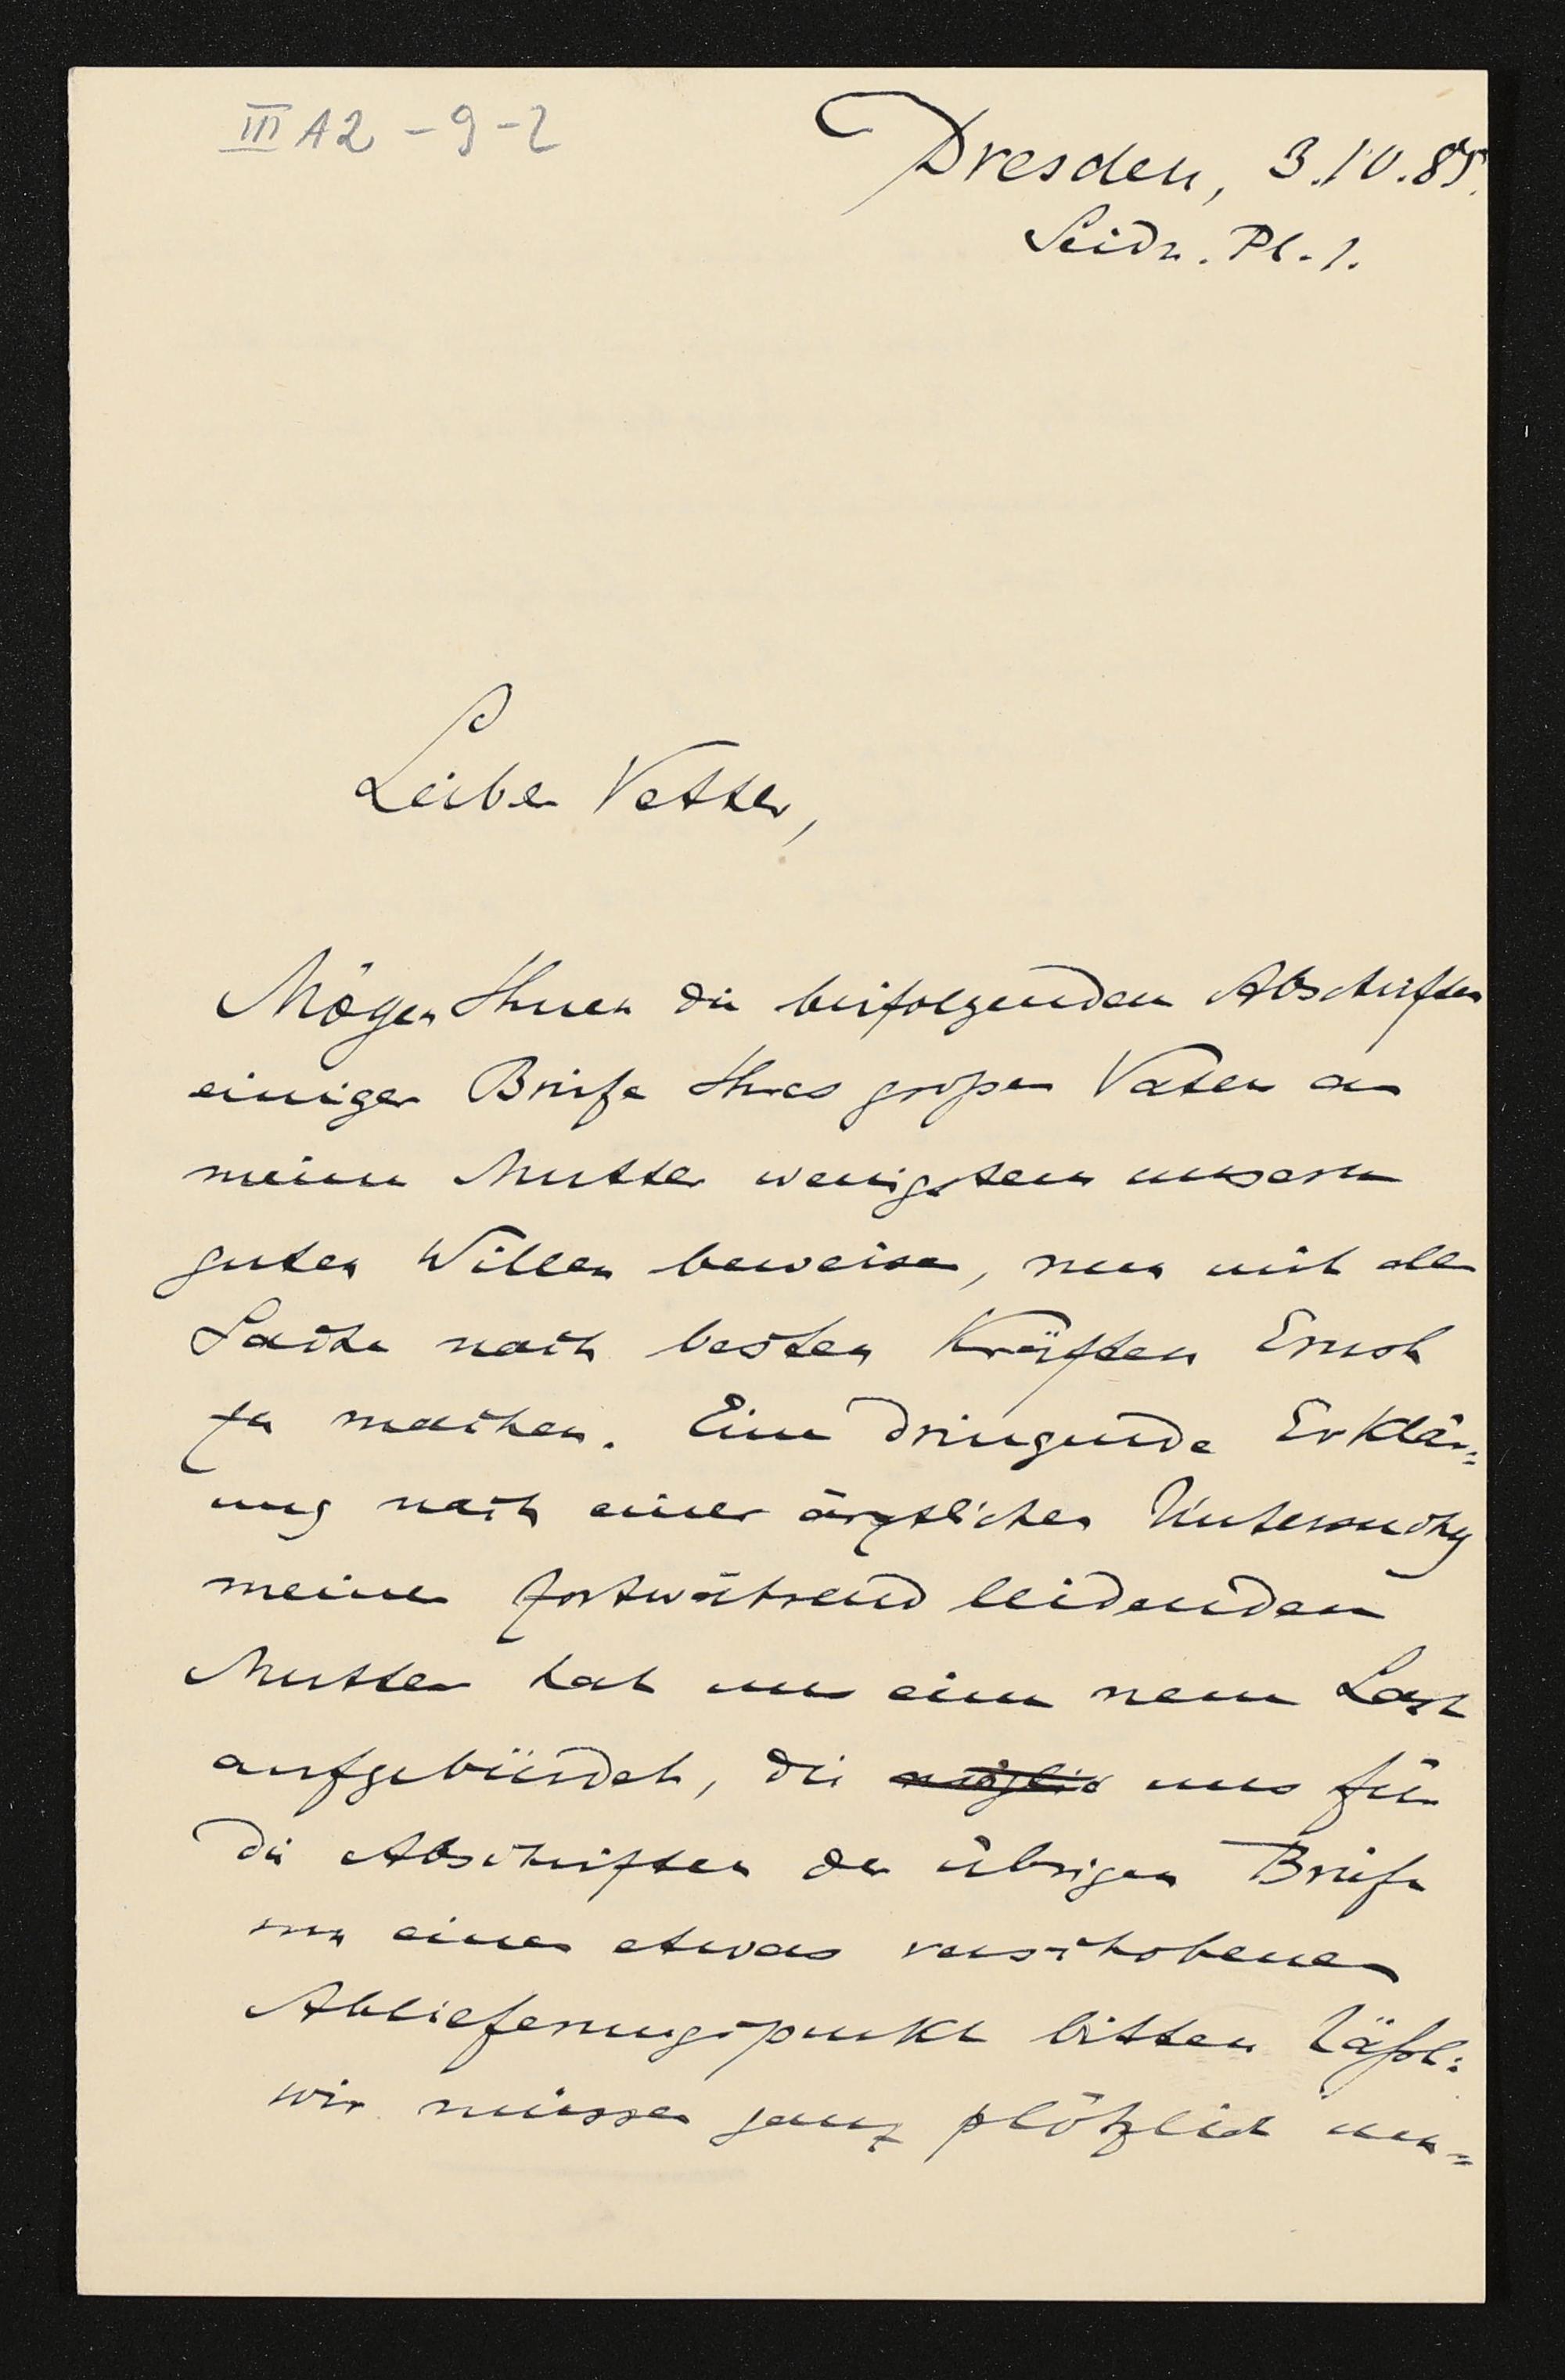 III A2 - 9 - 2
Dresden, 3.10.85.
Seidn. Pl. 1.
Lieber Vetter,
Mögen Ihnen die beifolgenden Abschriften
einiger Briefe Ihres großen Vaters an
meine Mutter wenigstens unseren
guten Willen beweisen, nun mit der
Sache nach besten Kräften Ernst
zu machen. Eine dringende Erklär=
ung nach einer ärztlichen Untersuchg
meiner fortwährend leidenden
Mutter hat uns eine neue Last
aufgebürdet, die möglich uns für
die Abschriften der übrigen Briefe
um einen etwas verschobenen
Ablieferungspunkt bitten läßt:
wir müssen ganz plötzlich un=